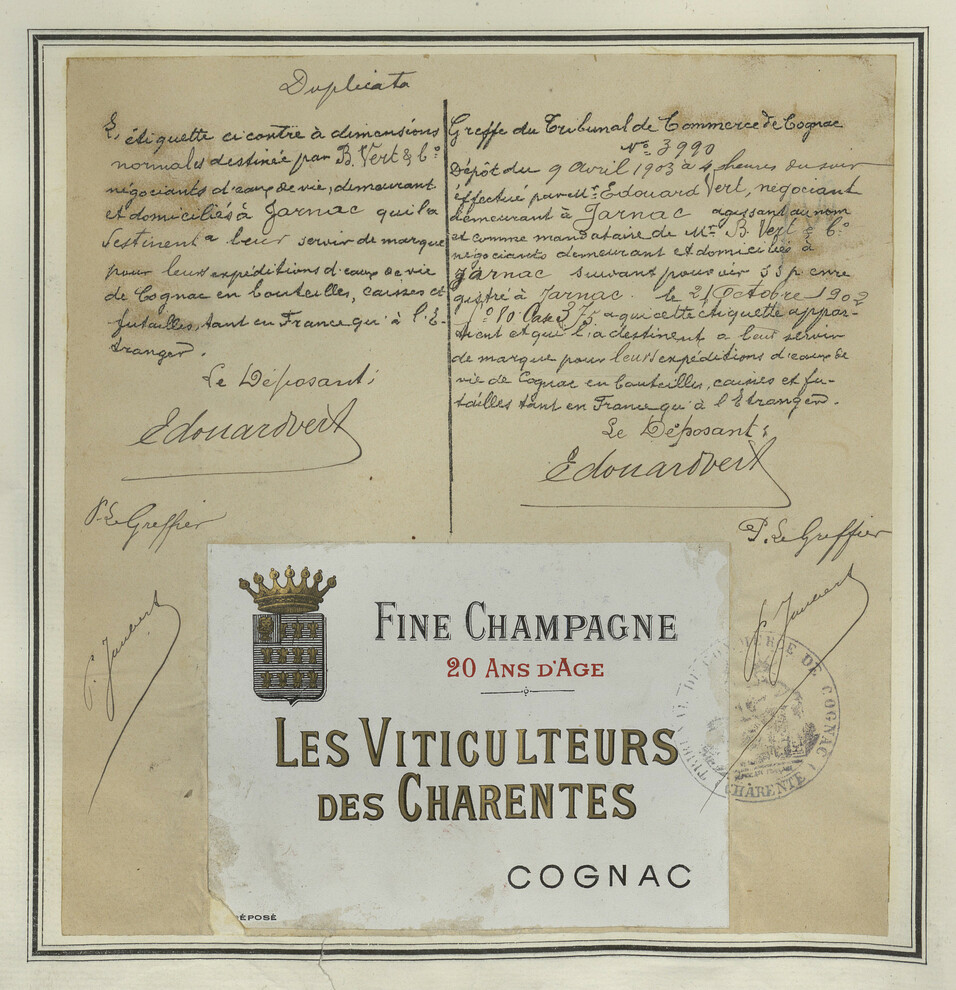 Duplicata
L'étiquette ci contre à dimensions
normales destinée par B. Vert & Cº
négociants d'eaux de vie, demeurant
et domiciliés à Jarnac qui la
destinent a leur servir de marque
pour leurs expéditions d'eaux de vie
de Cognac en bouteilles, caisses et
futailles, tant en France qu'à l'E-
tranger.
Le Déposant;
Edouard Vert
P. Le Greffier
P. Jaubert
Greffe du Tribunal de Commerce de Cognac
Nº 3990
Dépôt du 9 Avril 1903 à 4 heures du soir
effectué par Mr. Edouard Vert, négociant
demeurant à Jarnac agissant au nom
et comme mandataire de Mrs B. Vert & Cº
négociants demeurant et domiciliés à
Jarnac suivant pouvoir s s p enre
gistré à Jarnac. le 21 Octobre 1902
Fº 80 Case 375 a qui cette étiquette appar-
tient et qui l'a destinent a leur servir
de marque pour leurs expéditions d'eaux de
vie de Cognac en bouteilles, caisses et fu-
tailles tant en France qu'à l'Etranger.
Le Déposant;
Edouard Vert
P. Le Greffier
P. Jaubert
FINE CHAMPAGNE
20 ANS D'AGE
LES VITICULTEURS
DES CHARENTES
COGNAC
ÉPOSÉ
TRIBUNAL DE COMMERCE DE COGNAC
(CHARENTE)